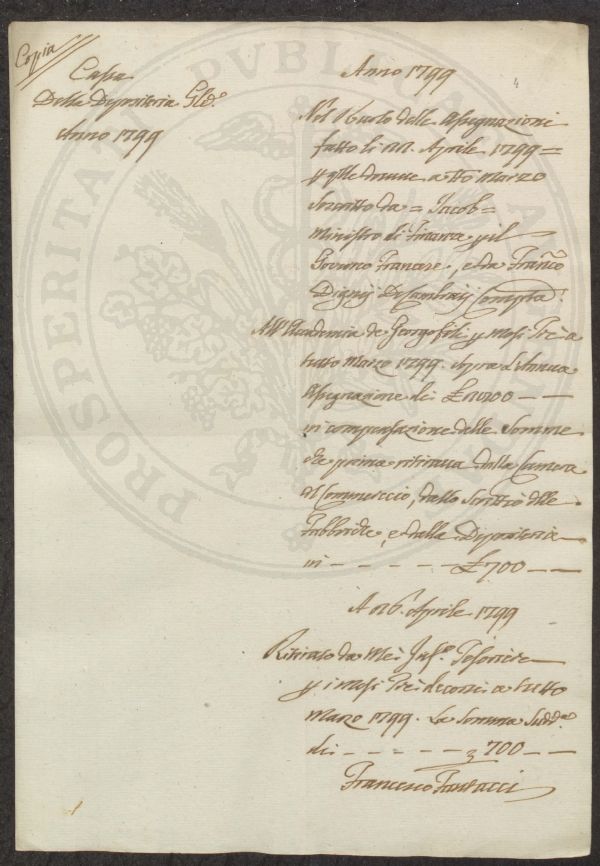 Copia
Cassa
Della Depositeria Gle.
Anno 1799
Anno 1799
4
Nel Ruolo delle Assegnazioni
fatto li Aprile 1799 =
tutto Marzo
Soscritto da = Jacob =
Ministro di Finanza p il
Governo Francese, e da Franco
Digny Computa.
All'Accademia de Georgofili p Mesi Tre a
tutto Marzo 1799. Annua
Assegnazione di £
in compensazione delle Somme
che prima ritirava dalla Camera
di Commercio, dallo Scrittoio delle
Fabbriche, e dalla Depositeria
in - - - - - - £ 700 - -
A Aprile 1799
Ritirato da Me Tesoriere
p i Mesi Tre decorsi a tutto
Marzo 1799. La Somma Sudda.
di - - - - - - 700 - -
Francesco
PROSPERITATI PUBLICAE